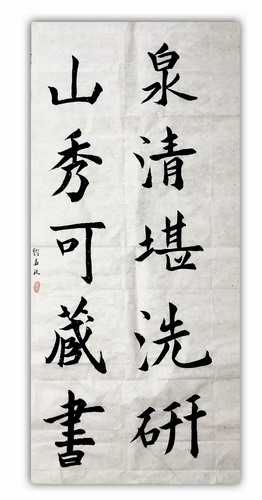 泉清堪洗研
山秀可蔵書